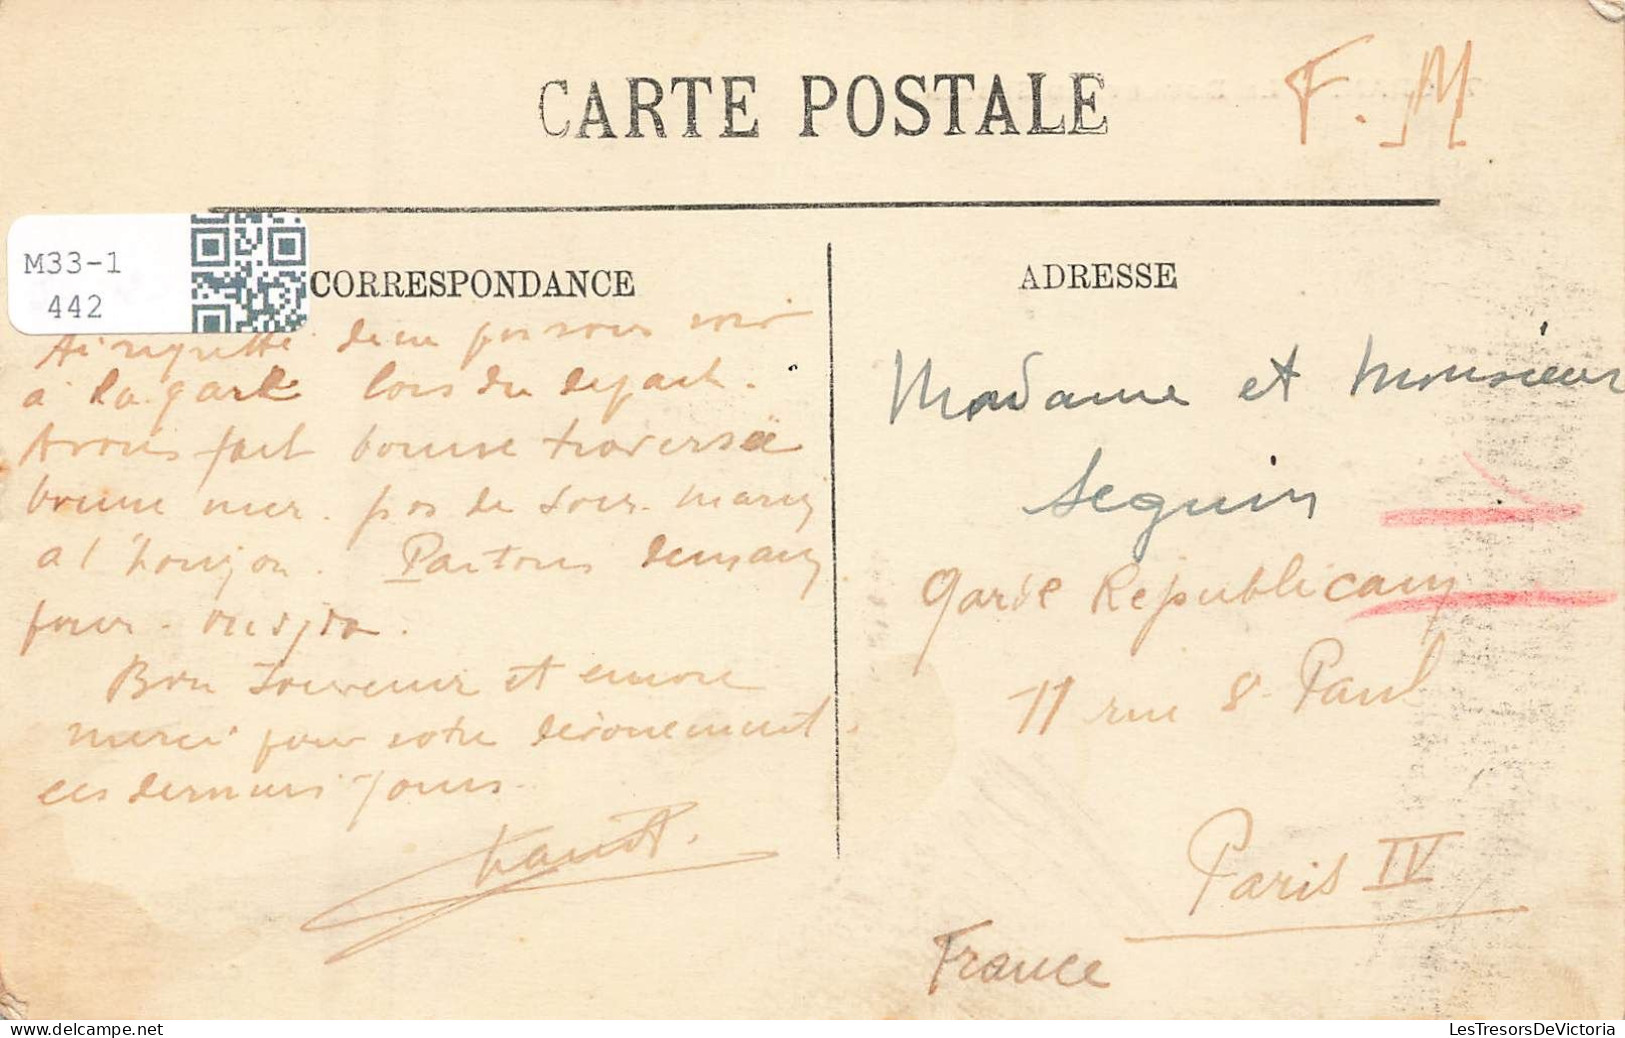 CARTE POSTALE
F. M
M33-1
442
CORRESPONDANCE
Ai regretté de ne pas vous voir
à la gare lors du depart.
Avons fait bonne traversée
bonne mer. pas de
a l'horizon. Partons demain
pour Oudjda.
Bon souvenir et encore
merci pour votre dévouement
ces derniers jours.
ADRESSE
Madame et Monsieur
Seguin
Garde Republicain
11 rue St Paul
Paris IV
France
LesTresorsDeVictoria
delcampe.net